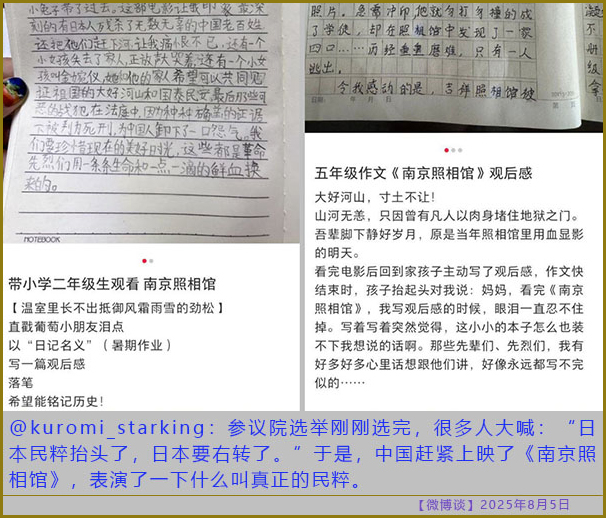 刻的有日本人 杀了无数无辜的中国老百姓
还把他们赶下河,让我痛恨不已,还有一个
小女孩失去了家人,正 哭着,还有一个女
孩叫金婉仪,她和他的家希望可以共同见
征祖国的大好河山和国泰民安最后那些可
恶的战犯在法庭中,因种种确凿的证据
下被判为死刑,为中国人卸下了一口怨气。我
们要珍惜现在的美好时光,这些都是革命
先烈们用一条条生命和一点一滴的鲜血换
来的。
NOTEBOOK
带小学二年级生观看 南京照相馆
【温室里长不出抵御风霜雨雪的劲松】
直戳葡萄小朋友泪点
以“日记名义”(暑期作业)
写一篇观后感
落笔
希望能铭记历史!
照片。急需冲印他就 的成
了学徒,却在照相馆中发现了一家
四口……历经重重磨难,只有一人
逃出。
令我感动的是,吉祥照相馆被
五年级作文《南京照相馆》观后感
大好河山,寸土不让!
山河无恙,只因曾有凡人以肉身堵住地狱之门。
吾辈脚下静好岁月,原是当年照相馆里用血显影
的明天。
看完电影后回到家孩子主动写了观后感,作文快
结束时,孩子抬起头对我说:妈妈,看完《南京
照相馆》,我写观后感的时候,眼泪一直忍不住
掉。写着写着突然觉得,这小小的本子怎么也装
不下我想说的话啊。那些先辈们、先烈们,我有
好多好多心里话想跟他们讲,好像永远都写不完
似的……
@kuromi_starking:参议院选举刚刚选完,很多人大喊:“日
本民粹抬头了,日本要右转了。”于是,中国赶紧上映了《南京照
相馆》,表演了一下什么叫真正的民粹。
【微博谈】2025年8月5日